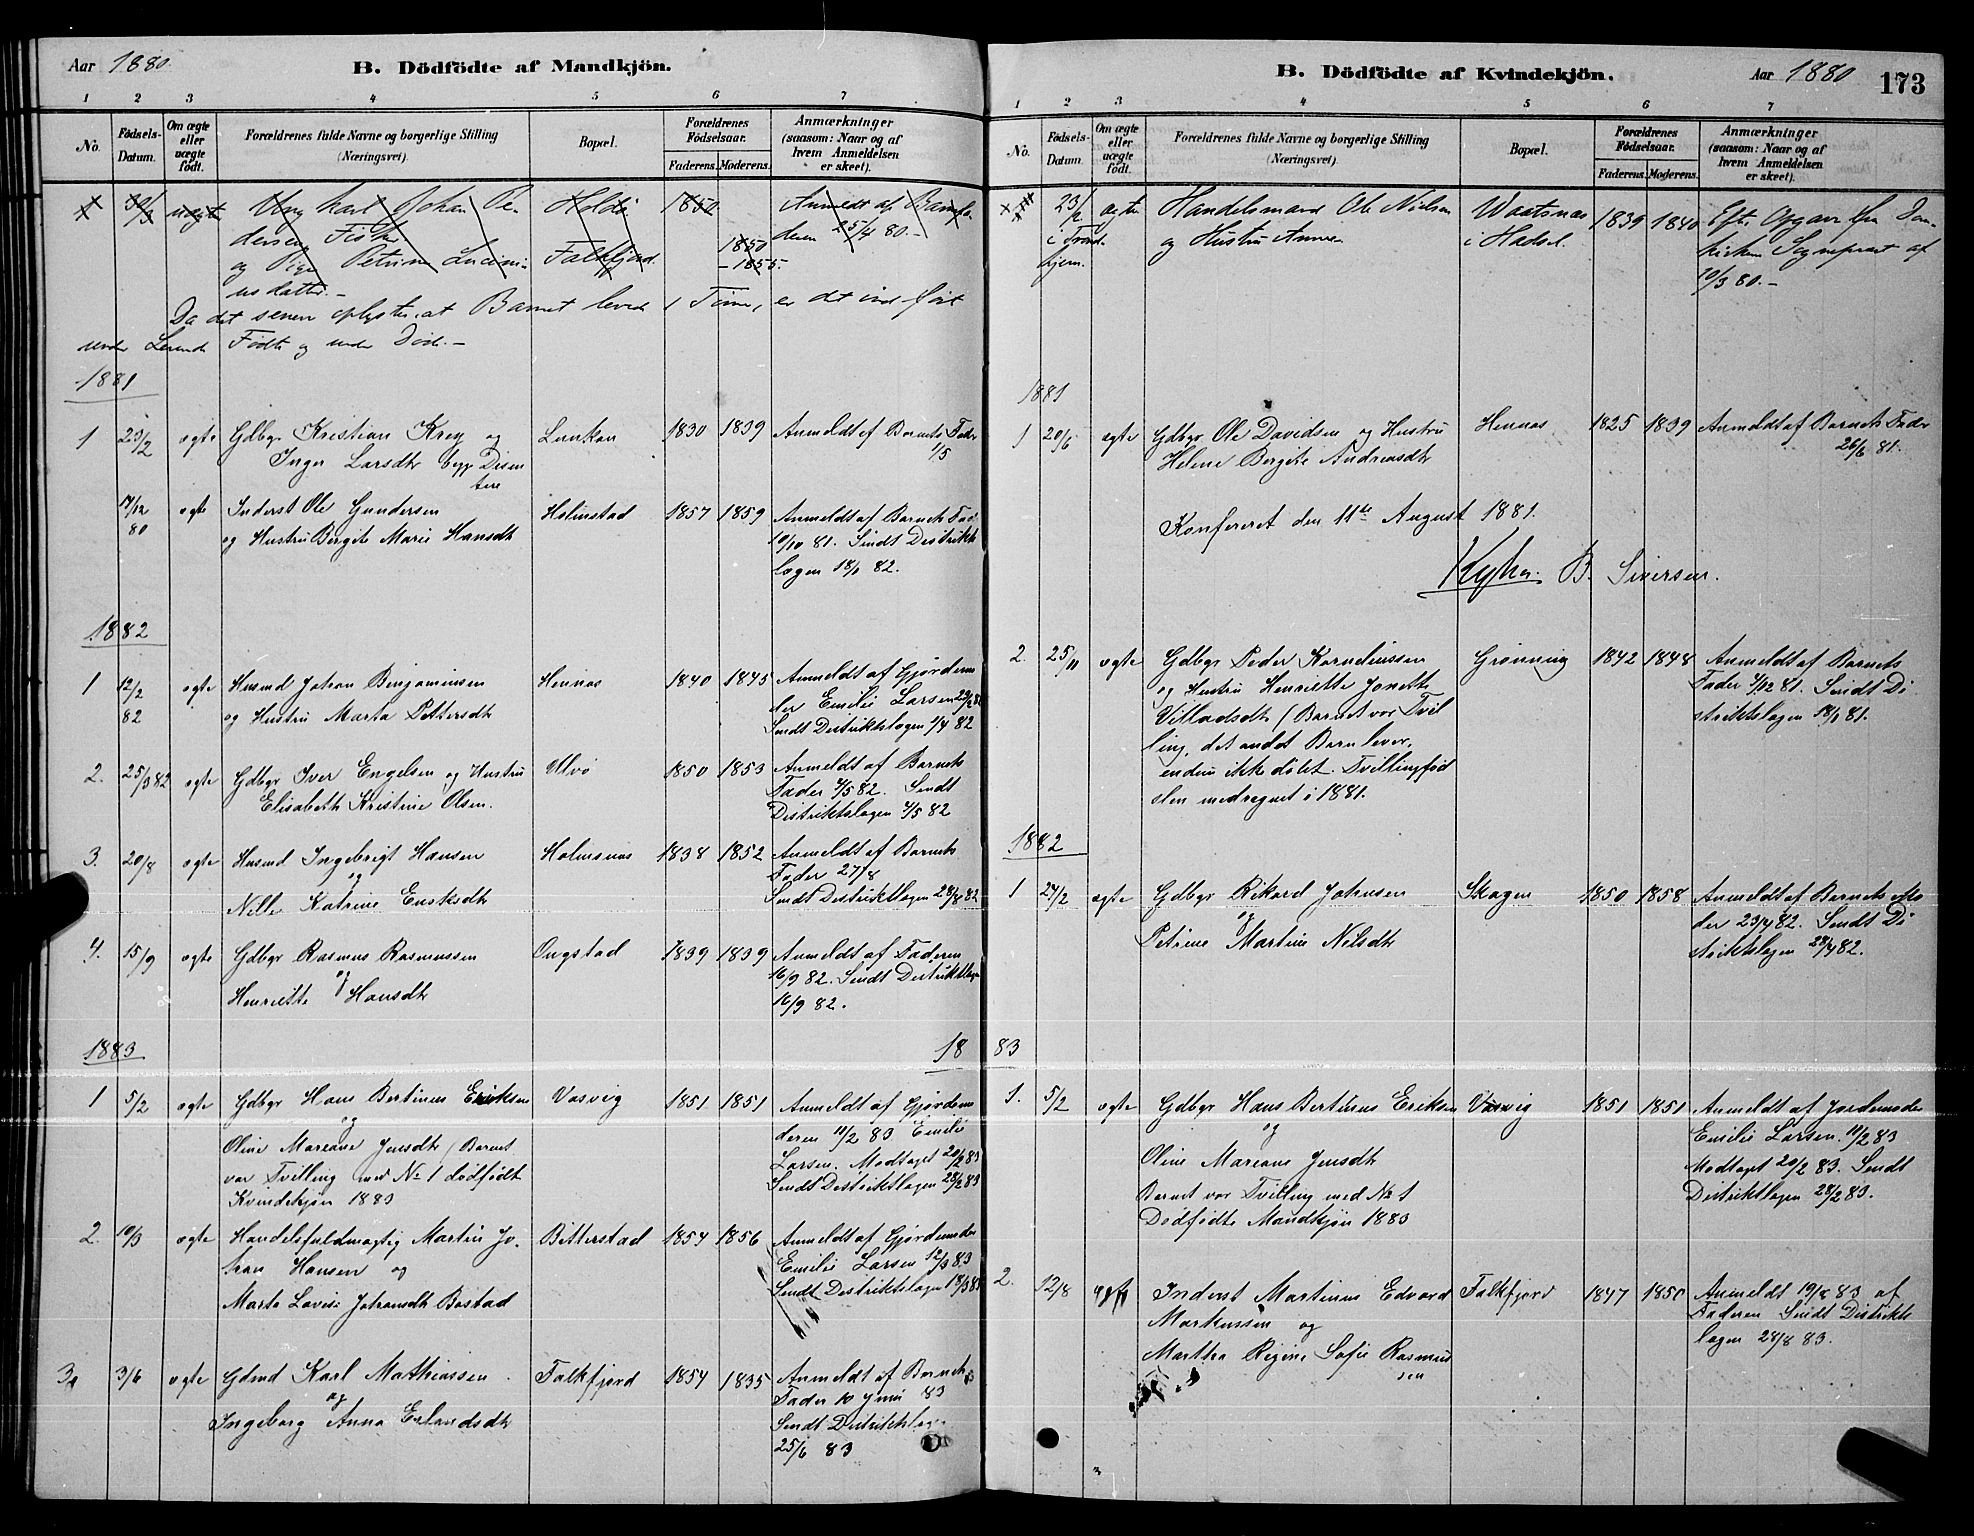 Aar 1880.
B. Dödfödte af Mandkjön.
1 2 3 4 5 6 7
No.
Födsels-Datum.
Om ægte eller uægte födt.
Forældrenes fulde Navne og borgerlige Stilling (Næringsvei).
Bopæl.
Forældrenes Födselsaar.
Faderens. Moderens.
Anmærkninger (saasom: Naar og af hvem Anmeldelsen er skeet).
30/3 uægte Ung karl Johan Pe- Holdø 1850 Anmeldt af Barnefa-
dersen Fisker deren 25/4 80.-
og Pige Petrine Lucini- Falkfjord 1850
usdatter.- - 1855.
Da det senere oplystes, at Barnet levede 1 Time, er det ind ført
under Levende Födte og under Döde.-
1881
1 23/2 ægte Gdbgr Kristian Krey og Lunkan 1830 1839 Anmeldt af Barnets Fader
Inger Larsdtr begge Disen 1/5
tere
17/12 ægte Inderst Ole Gundersen Holmstad 1857 1859 Anmeldt af Barnets Fad
80 og Hustru Bergite Marie Hansdtr 10/10 81. Sendt Distrikts
lægen 18/1 82.
1882
1 12/2 ægte Husmd Johan Benjaminsen Hennes 1840 1845 Anmeldt af Gjordemo
82 og Hustru Marta Pettersdtr der Emilie Larsen 22/2 82
Sendt Distriktslægen 1/4 82
2. 25/3 82 ægte Gdbgr Iver Engelsen og Hustru Ulvø 1850 1853 Anmeldt af Barnets
Elisabeth Kristine Olsen. Fader 4/5 82. Sendt
Distriktslægen 4/5 82
3. 20/8 ægte Husmd Ingebrigt Hansen Holmsnes 1838 1852 Anmeldt af Barnets
og Fader 27/8
Nille Katrine Enoksdtr Sendt Distriktslægen 28/8 82
4. 15/9 ægte Gdbgr Rasmus Rasmussen Ongstad 1839 1839 Anmeldt af Faderen
og 16/9 82. Sendt Distriktslægen
Henriette Hansdtr 16/9 82.
1883
1 5/2 ægte Gdbgr Hans Bertinus Eriksen Vasvig 1851 1851 Anmeldt af Gjordemo
og deren 11/2 83 Emilie
Oline Mariane Jensdtr (Barnet Larsen. Modtaget 20/2 83
var Tvilling med No 1 dödfödt Sendt Distriktslægen 28/2 83
Kvindekjön 1883
2. 10/3 ægte Handelsfuldmægtig Martin Jo- Bitterstad 1854 1856 Anmeldt af Gjordemoder
han Hansen og Emilie Larsen 12/3 83
Marta Lovise Johansdtr Bostad Sendt Distriktslægen 18/3 83
3. 3/6 ægte Gdmd Karl Mathiassen Falkfjord 1854 1835 Anmeldt af Barnets
og Fader 10 Juni 83
Ingeborg Anna Erlandsdtr Sendt Distriktslægen
25/6 83
B. Dödfödte af Kvindekjön.
Aar 1880 173
1 2 3 4 5 6 7
No.
Födsels-Datum.
Om ægte eller uægte födt.
Forældrenes fulde Navne og borgerlige Stilling (Næringsvei).
Bopæl.
Forældrenes Födselsaar.
Faderens. Moderens.
Anmærkninger (saasom: Naar og af hvem Anmeldelsen er skeet).
23/2 ægte Handelsmand Ole Nielsen Waatsnes 1839 1840 Eft. Opgave fra Dom-
i Trond- og Hustru Anne i Hadsel. kirkens Sognepræst af
hjem. 10/3 80.-
1881
1 20/6 ægte Gdbgr Ole Davidsen og Hustru Hennes 1825 1839 Anmeldt af Barnets Fader
Helene Bergite Andreasdtr 26/6 81.
Konfereret den 11te August 1881.
B. Siversen.
2. 25/11 ægte Gdbgr Peder Kornelinssen Grønning 1842 1848 Anmeldt af Barnets
og Hustru Henriette Jonette Fader 4/12 81. Sendt Di
Villadsdtr (Barnet var Tvil striktslægen 18/1 81.
ling, det andet Barn lever,
endnu ikke döbt. Tvillingföd
slen medregnet i 1881.
1882
1 24/2 ægte Gdbgr Rikard Johnsen Skagen 1850 1858 Anmeldt af Barnets Mo
og der 23/4 82. Sendt Di
Petrine Martine Nilsdtr striktslægen 28/4 82.
1883
1. 5/2 ægte Gdbgr Hans Bertinus Eriksen Vasvig 1851 1851 Anmeldt af Jordemoder
og Emilie Larsen. 11/2 83
Oline Mariane Jensdtr Modtaget 20/2 83. Sendt
Barnet var Tvilling med No 1 Distriktslægen 28/2 83.
Dödfödte Mandkjön 1883
2. 12/8 ægte Inderst Martinus Edvard Falkfjord 1847 1850 Anmeldt 19/8 83 af
Markussen og Faderen Sendt Distrikts
Martha Regine Sofie Rasmus lægen 28/8 83.
sen